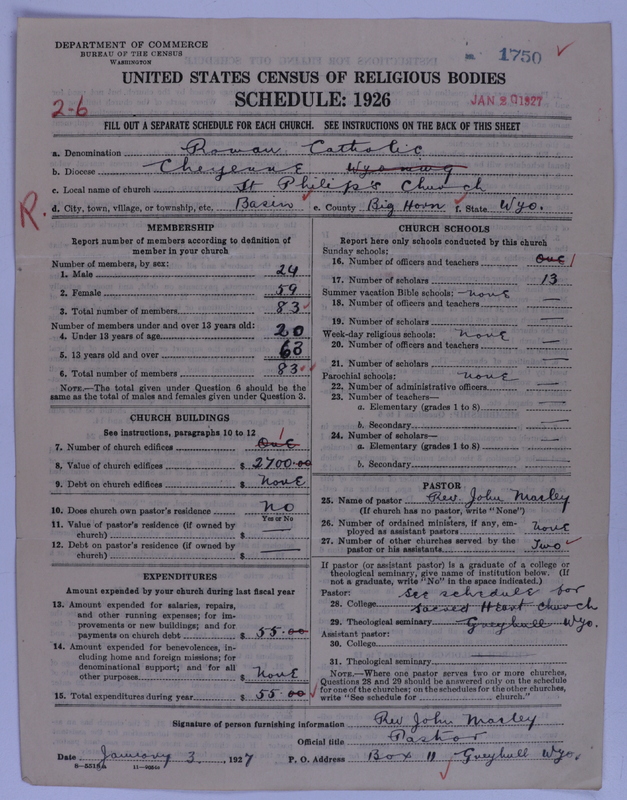 DEPARTMENT OF COMMERCE
BUREAU OF THE CENSUS
WASHINGTON
1750
UNITED STATES CENSUS OF RELIGIOUS BODIES
SCHEDULE: 1926
2-6
JAN 20 1927
FILL OUT A SEPARATE SCHEDULE FOR EACH CHURCH. SEE INSTRUCTIONS ON THE BACK OF THIS SHEET
a. Denomination Roman Catholic
b. Diocese Cheyenne Wyoming
c. Local name of church St Philip's Church
d. City, town, village, or township, etc. Basin e. County Big Horn f. State Wyo.
R.
MEMBERSHIP
Report number of members according to definition of
member in your church
Number of members, by sex:
1. Male 24
2. Female 59
3. Total number of members 83
Number of members under and over 13 years old:
4. Under 13 years of age 20
5. 13 years old and over 63
6. Total number of members 83
NOTE.—The total given under Question 6 should be the
same as the total of males and females given under Question 3.
CHURCH BUILDINGS
See instructions, paragraphs 10 to 12
1
7. Number of church edifices One
8. Value of church edifices $ 2700.00
9. Debt on church edifices $ None
10. Does church own pastor's residence No
Yes or No
11. Value of pastor's residence (if owned by
church) $ —
12. Debt on pastor's residence (if owned by
church) $ —
EXPENDITURES
Amount expended by your church during last fiscal year
13. Amount expended for salaries, repairs,
and other running expenses; for im-
provements or new buildings; and for
payments on church debt $ 55.00
14. Amount expended for benevolences, in-
cluding home and foreign missions; for
denominational support; and for all
other purposes $ None
15. Total expenditures during year $ 55.00
CHURCH SCHOOLS
Report here only schools conducted by this church
Sunday schools:
16. Number of officers and teachers One 1
17. Number of scholars 13
Summer vacation Bible schools: None
18. Number of officers and teachers —
19. Number of scholars —
Week-day religious schools: None
20. Number of officers and teachers —
21. Number of scholars —
Parochial schools: None
22. Number of administrative officers —
23. Number of teachers—
a. Elementary (grades 1 to 8) —
b. Secondary —
24. Number of scholars—
a. Elementary (grades 1 to 8) —
b. Secondary —
PASTOR
25. Name of pastor Rev. John Marley
(If church has no pastor, write "None")
26. Number of ordained ministers, if any, em-
ployed as assistant pastors None
27. Number of other churches served by the
pastor or his assistants Two
If pastor (or assistant pastor) is a graduate of a college or
theological seminary, give name of institution below. (If
not a graduate, write "No" in the space indicated.)
Pastor: See schedule for
28. College Sacred Heart Church
29. Theological seminary Greybull Wyo.
Assistant pastor:
30. College
31. Theological seminary
NOTE.—Where one pastor serves two or more churches,
Questions 28 and 29 should be answered only on the schedule
for one of the churches; on the schedules for the other churches,
write "See schedule for church."
Signature of person furnishing information Rev John Marley
Official title Pastor
Date January 3, 1927 P. O. Address Box 11 Greybull Wyo.